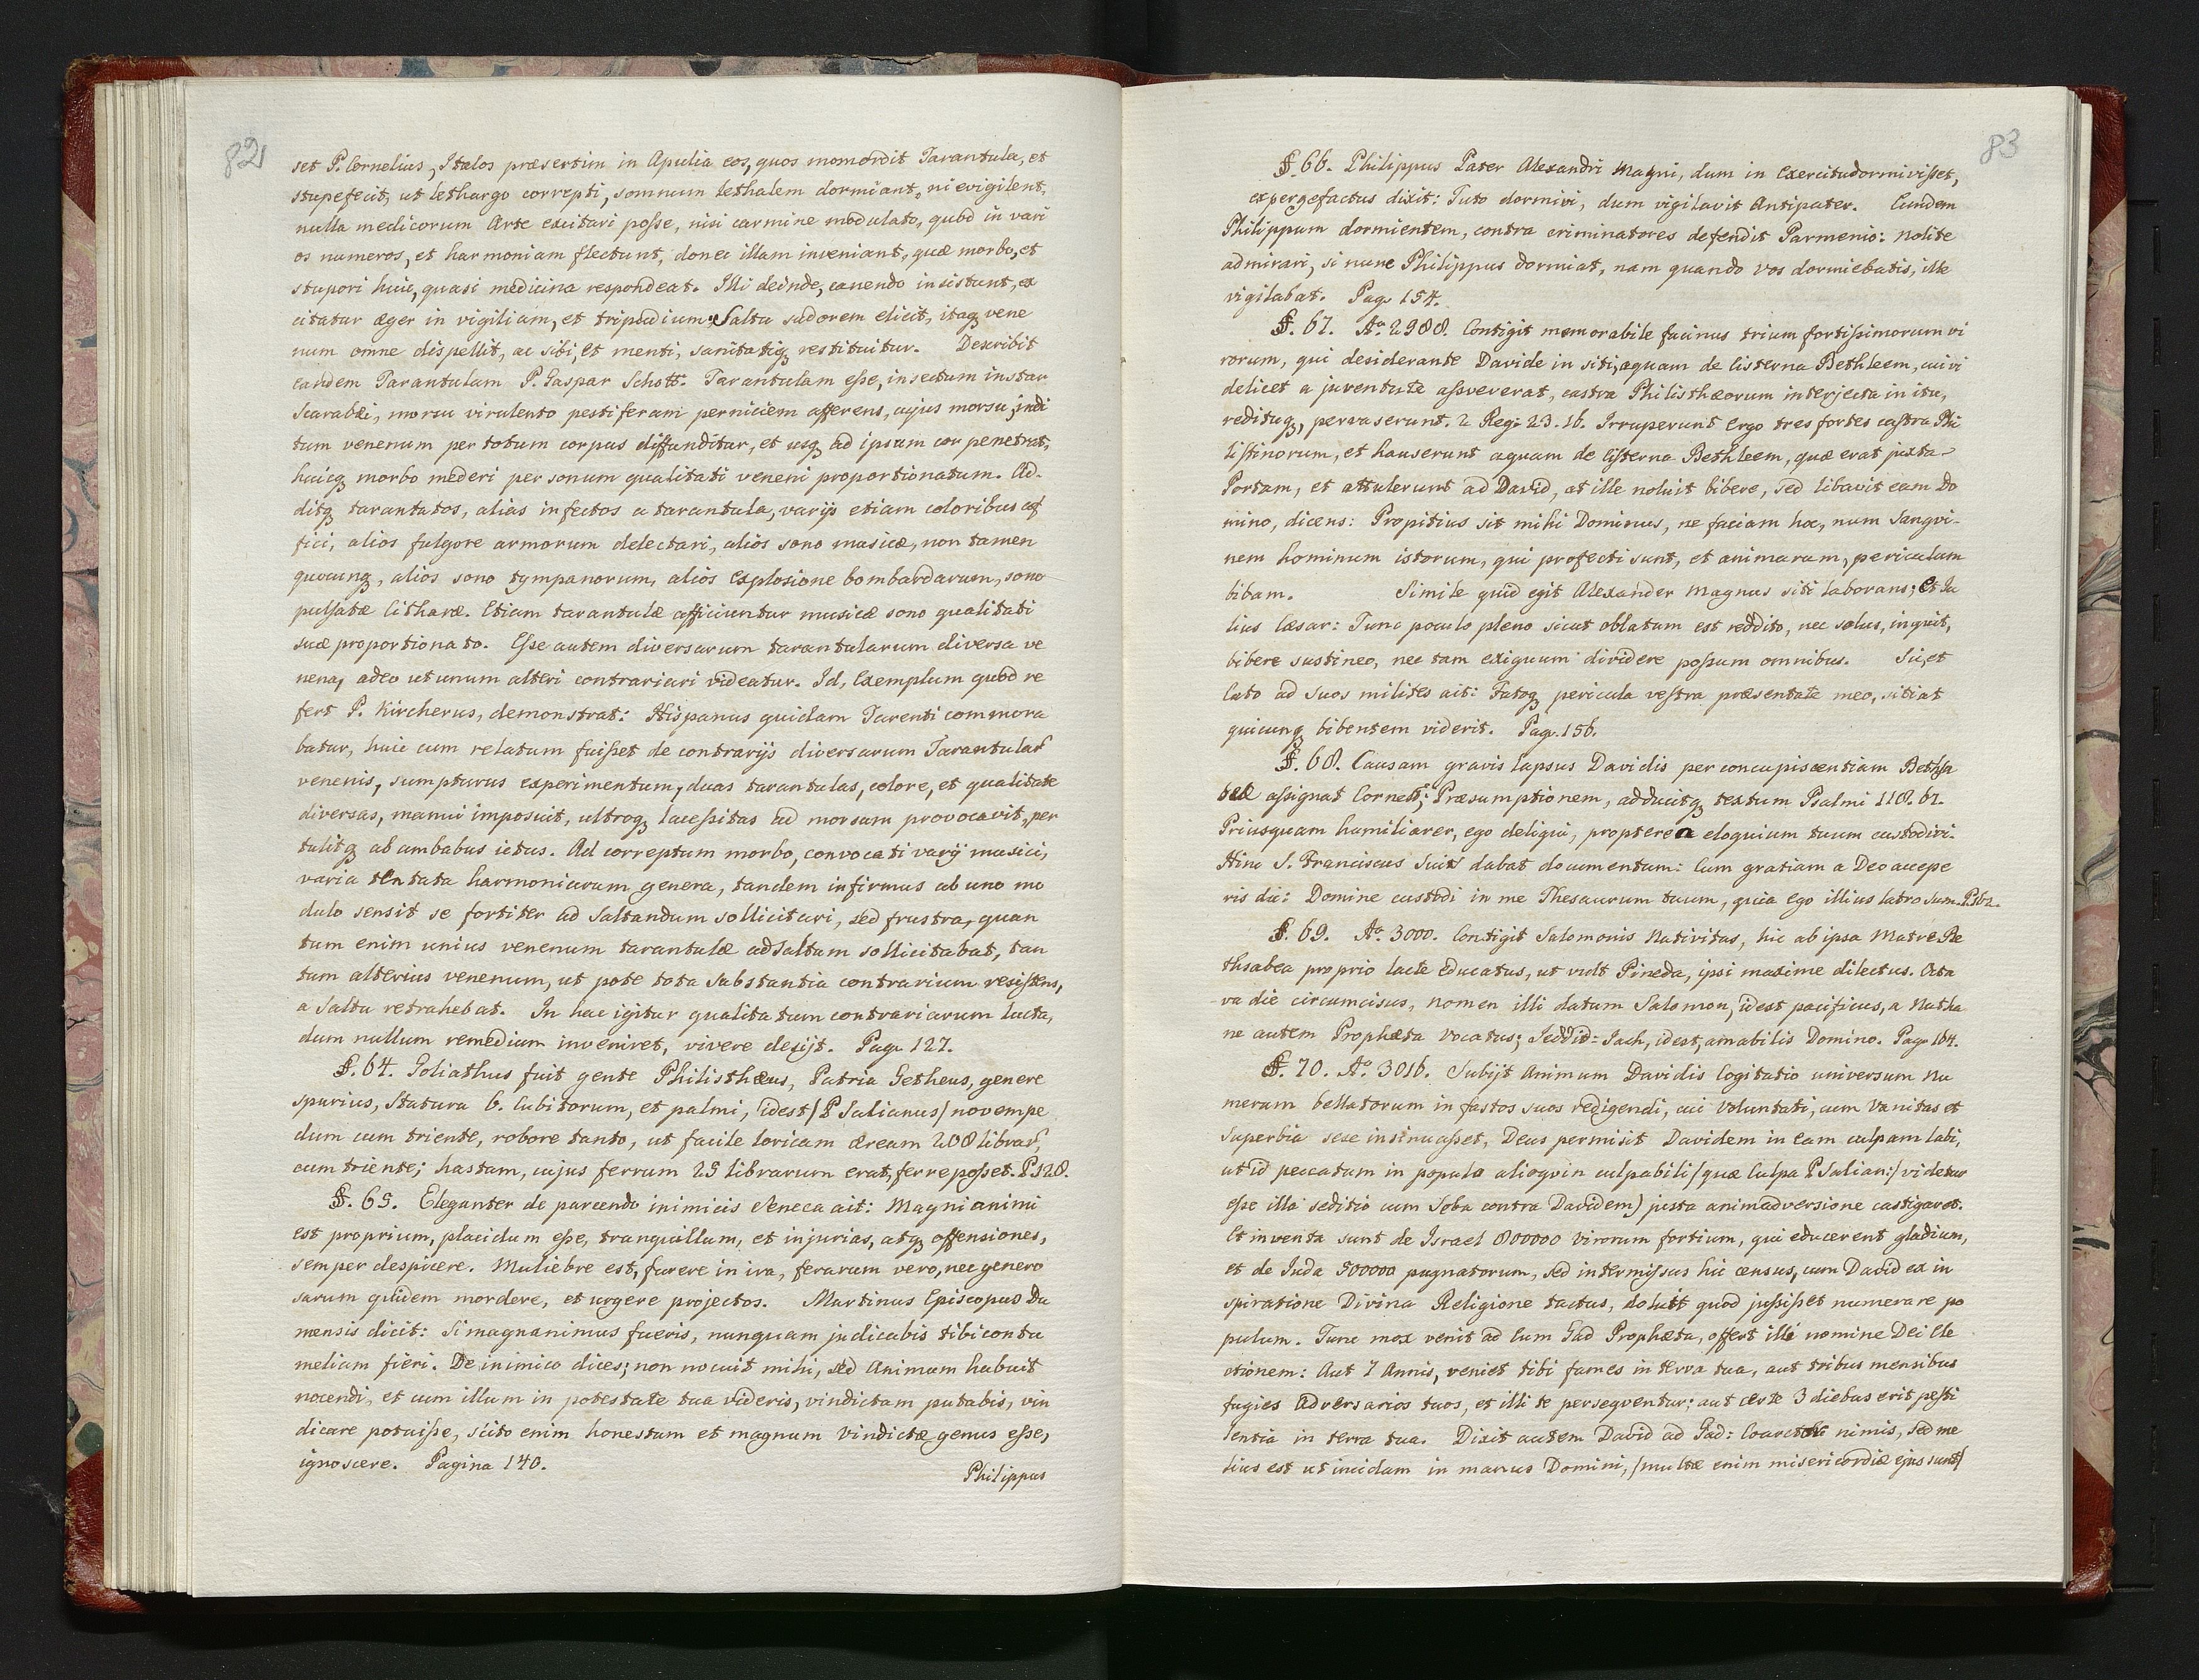 82
set P. Cornelius, Italos præsertim in Apulia eos, quos momordit Tarantula, et
stupefecit, ut lethargo correpti, somnum lethalem dormiant, ni evigilent,
nulla medicorum Arte excitari posse, nisi carmine modulato, quod in vari
os numeros, et harmoniam flectunt, donec illam inveniant, quæ morbo, et
stupori huic, quasi medicina respondeat. Illi deinde, canendo insistunt, ex
citatur æger in vigiliam, et tripudium, Saltu sudorem elicit, itaq vene
num omne dispellit, ac sibi, et menti, sanitatiq restituitur. Describit
eandem Tarantulam P. Gaspar Schott. Tarantulam esse, insectum instar
Scarabæi, morsu virulento pestiferam perniciem afferens, cujus morsu indi
tum venenum per totum corpus diffunditur, et usq ad ipsum cor penetrat,
huicq morbo mederi per sonum qualitati veneni proportionatum. Ad-
ditq tarantatos, alias infectos a tarantula, varijs etiam coloribus af
fici, alios fulgore armorum delectari, alios sono musicæ, non tamen
quocunq, alios sono tympanorum, alios explosione bombardarum, sono
pulsatæ Citharæ. Etiam tarantulæ afficiuntur musicæ sono qualitati
suæ proportionato. Esse autem diversarum tarantularum diversa ve
nena, adeo ut unum alteri contrariari videatur. Id, Exemplum quod re
fert P. Kircherus, demonstrat: Hispanus quidam Tarenti commora
batur, huic cum relatum fuisset de contrarijs diversarum Tarantular
venenis, sumpturus experimentum, duas tarantulas, colore, et qualitate
diversas, manui imposuit, ultroq lacessitas ad morsum provocavit, per
tulitq ab ambabus ictus. Ad correptum morbo, convocati varij musici,
varia tentata harmoniarum genera, tandem infirmus ab uno mo
dulo sensit se fortiter ad Saltandum sollicitari, sed frustra, quan
tum enim unius venenum tarantulæ ad Saltum sollicitabat, tan
tum alterius venenum, ut pote tota Substantia contrarium resistens,
a Saltu retrahebat. In hac igitur qualitatum contrariarum lucta,
dum nullum remedium inveniret, vivere desijt. Pag. 127.
§. 64. Goliathus fuit gente Philisthæus, Patria Getheus, genere
spurius, Statura 6. Cubitorum, et palmi, idest / P Salianus / novempe
dum cum triente, robore tanto, ut facile loricam æream 208 librar,
cum triente; hastam, cujus ferrum 25 librarum erat, ferre posset. P 128.
§. 65. Eleganter de parcendo inimicis Seneca ait: Magni animi
est proprium, placidum esse, tranquillum, et injurias, atq offensiones,
semper despicere. Muliebre est, furere in ira, ferarum vero, nec genero
sarum quidem mordere, et urgere projectos. Martinus Episcopus Du
mensis dicit: Si magnanimus fueris, nunquam judicabis tibi contu
meliam fieri. De inimico dices; non nocuit mihi, sed Animum habuit
nocendi, et cum illum in potestate tua videris, vindictam putabis, vin
dicare potuisse, scito enim honestum et magnum vindictæ genus esse,
ignoscere. Pagina 140.
Philippus
83
§. 66. Philippus Pater Alexandri Magni, dum in Exercitu dormivisset,
expergefactus dixit: Tuto dormivi, dum vigilavit Antipater. Eundem
Philippum dormientem, contra criminatores defendit Parmenio: nolite
admirari, si nunc Philippus dormiat, nam quando vos dormiebatis, ille
vigilabat. Pag. 154.
§. 67. Ao. 2988. Contigit memorabile facinus trium fortissimorum vi
rorum, qui desiderante Davide in siti, aquam de Cisterna Bethleem, cui vi
delicet a juventute assueverat, castra Philisthæorum interjecta in itu,
redituq, pervaserunt. 2 Reg. 23. 16. Irruperunt Ergo tres fortes castra Phi
listinorum, et hauserunt aquam de Cisterna Bethleem, quæ erat juxta
Portam, et attulerunt ad David, at ille noluit bibere, sed libavit eam Do
mino, dicens: Propitius sit mihi Dominus, ne faciam hoc, num Sangvi-
nem hominum istorum, qui profecti sunt, et animarum, periculum
bibam. Simile quid egit Alexander Magnus siti laborans; Et Ju
lius Cæsar: Tunc poculo pleno sicut oblatum est reddito, nec solus, inquit,
bibere sustineo, nec tam exiguum dividere possum omnibus. Sic, et
Cato ad suos milites ait: Fatoq pericula vestra præsentate meo, sitiat
quicunq bibentem viderit. Pag. 156.
§. 68. Causam gravis lapsus Davidis per concupiscentiam Bethsa
beæ assignat Cornel; Præsumptionem, adducitq textum Psalmi 118. 67.
Priusquam humiliarer, ego deliqui, propterea eloquium tuum custodivi.
Hinc S. Franciscus Suis dabat documentum: Cum gratiam a Deo accepe
ris dic: Domine custodi in me Thesaurum tuum, quia Ego illius latro sum. P. 162.
§. 69. Ao. 3000. Contigit Salomonis Nativitas, hic ab ipsa Matre Be
thsabea proprio lacte Educatus, ut vult Pineda, ipsi maxime dilectus. Octa
va die circumcisus, nomen illi datum Salomon, idest pacificus, a Natha
ne autem Prophæta Vocatus; Jeddid-Jach, idest, amabilis Domino. Pag. 164.
§. 70. Ao. 3016. Subijt Animum Davidis Cogitatio universum Nu
merum bellatorum in fastos suos redigendi, cui Voluntati, cum Vanitas et
Superbia sese insinuasset, Deus permisit Davidem in Eam culpam labi,
ut id peccatum in populo alioqvin culpabili / quæ Culpa P Salian: / videtur
esse illa seditio cum Seba contra Davidem) justa animadversione castigaret.
Et inventa sunt de Israel 800000 virorum fortium, qui educerent gladium,
et de Juda 500000 pugnatorum, sed intermissus hic census, cum David ex in
spiratione Divina Religione tactus, doluit quod jussisset numerare po
pulum. Tunc mox venit ad Eum Gad Prophæta, offert illi nomine Dei Ele
ctionem: Aut 7 Annis, veniet tibi fames in terra tua, aut tribus mensibus
fugies adversarios tuos, et illi te persequentur; aut certe 3 diebus erit pesti
lentia in terra tua. Dixit autem David ad Gad: Coarctor nimis, sed me
lius est ut incidam in manus Domini, / multæ enim misericordiæ ejus sunt /